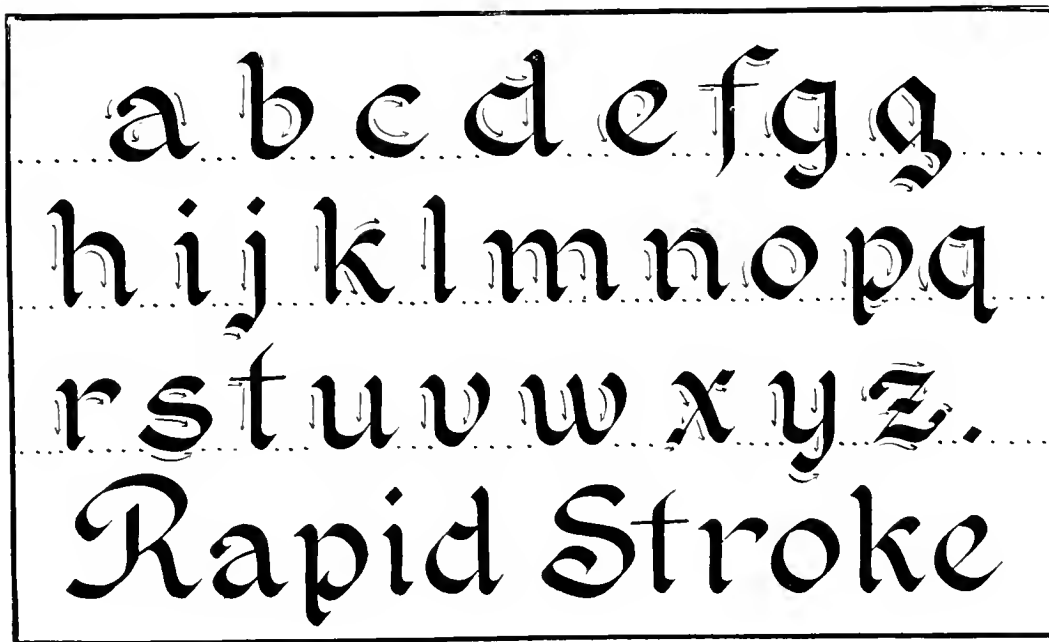 a b c d e f g g
h i j k l m n o p q
r s t u v w x y z.
Rapid Stroke